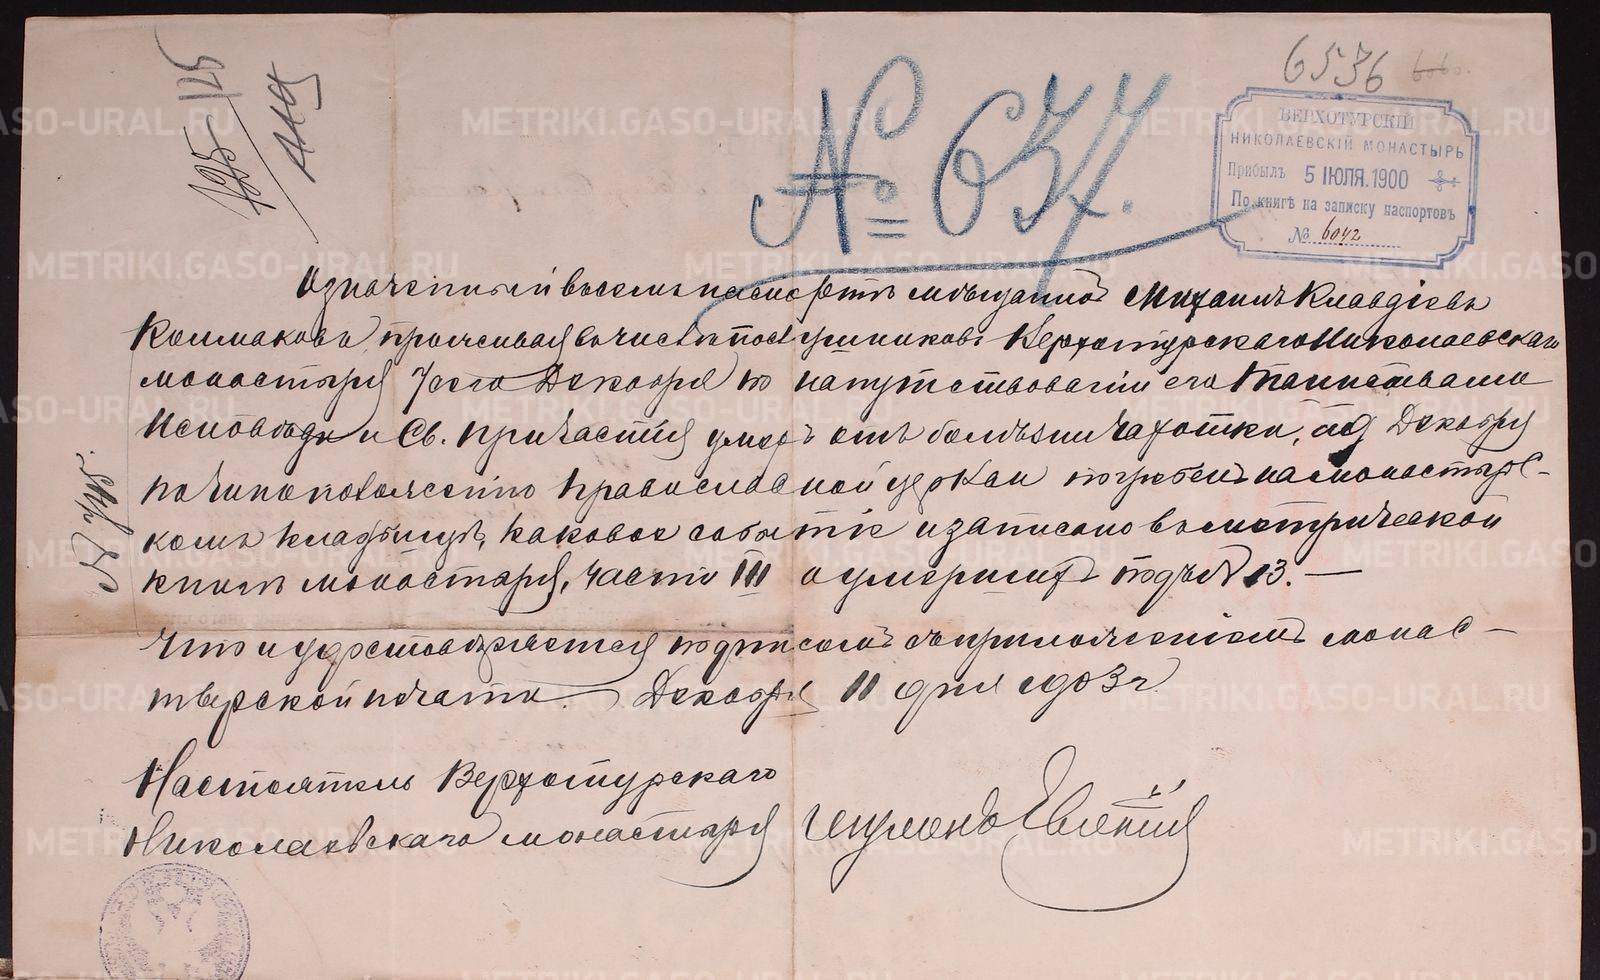 6536
№ 637.
ВЕРХОТУРСКІЙ
НИКОЛАЕВСКІЙ МОНАСТЫРЬ
Прибылъ 5 ІЮЛЯ.1900
По книгѣ на записку паспортовъ
№ 6042
Означенный въ семъ паспортѣ мѣщанинъ Михаилъ Клавдіевъ
Колмаковъ проживая въ числѣ послушниковъ Верхотурскаго Николаевскаго
монастыря 7го сего Декабря по напутствованіи его Таинствами
Исповѣди и Св. Причастія умеръ отъ болѣзни чахотки, Декабря
по чиноположенію православной церкви погребенъ на монастырс-
комъ кладбищѣ, каковое событіе и записано въ метрической
книгѣ монастыря, части III о умершихъ подъ № 13. —
Что и удостовѣряется подписомъ съ приложеніемъ монас-
тырской печати. Декабря 11 дня 1903 г.
Настоятель Верхотурскаго
Николаевскаго монастыря игуменъ
METRIKI.GASO-URAL.RU